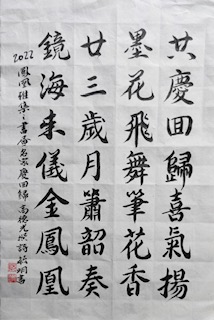 共慶回歸喜氣揚
墨花飛舞筆花香
廿三歲月簫韶奏
鏡海來儀金鳳凰
2022鳳凰雅集書畫名家慶回歸 高德光 詩